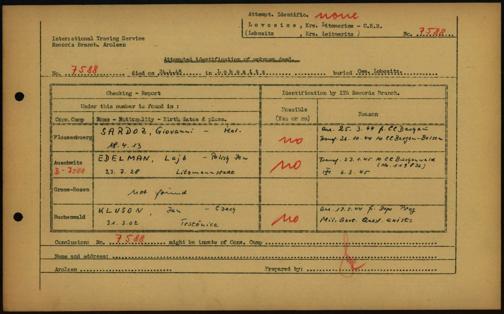 Attempt. Identific. none
Lovosice, Krs. Litomerice - C.S.R.
(Lobositz , Krs. Leitmeritz) No. 7588
International Tracing Service
Records Branch, Arolsen
Attempted identification of unknown dead.
No. 7588 died on in Lobositz buried Cem. Lobositz.
Checking - Report
Identification by ITS Records Branch.
Under this number is found in:
Possible (Yes or no)
Reason
Conc. Camp
Name - Nationality - Birth dates & place.
Flossenbuerg
SARDOZ, Giovanni - Ital.
18.4.13
no
Arr. 25.3.44 f. CC Dachau
Transf. 26.10.44 to CC Bergen-Belsen
Auschwitz
B-7588
EDELMAN, Lajb - Polish Jew
23.7.28 Litzmannstadt
no
Transf. 23.1.45 to CC Buchenwald
6.3.45
Gross-Rosen
not found
Buchenwald
KLUSON, Jan - Czech
31.3.02
no
Mil. Gov. Quest. exists
Conclusion: No. 7588 might be inmate of Conc. Camp
Name and address:
Arolsen
Prepared by: